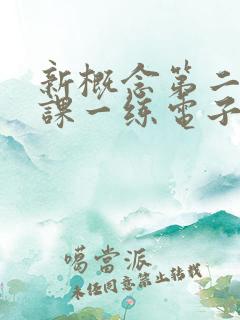 新概念第二
課一练電子
噶當派
未经同意禁止转载